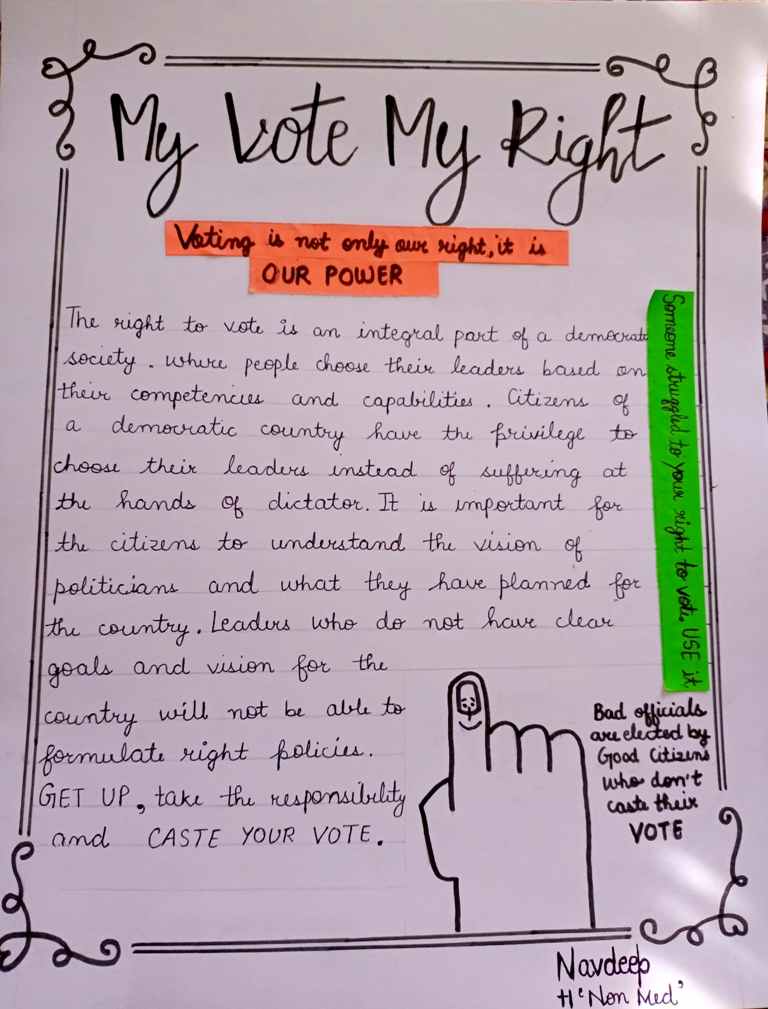 My Vote My Right
Voting is not only our right, it is
OUR POWER
The right to vote is an integral part of a democratic
society. where people choose their leaders based on
their competencies and capabilities. Citizens of
a democratic country have the privilege to
choose their leaders instead of suffering at
the hands of dictator. It is important for
the citizens to understand the vision of
politicians and what they have planned for
the country. Leaders who do not have clear
goals and vision for the
country will not be able to
formulate right policies.
GET UP, take the responsibility
and CASTE YOUR VOTE.
Someone struggled to your right to vote. USE it
Bad officials
are elected by
Good Citizens
who don't
caste their
VOTE
Navdeep
'Non Med'